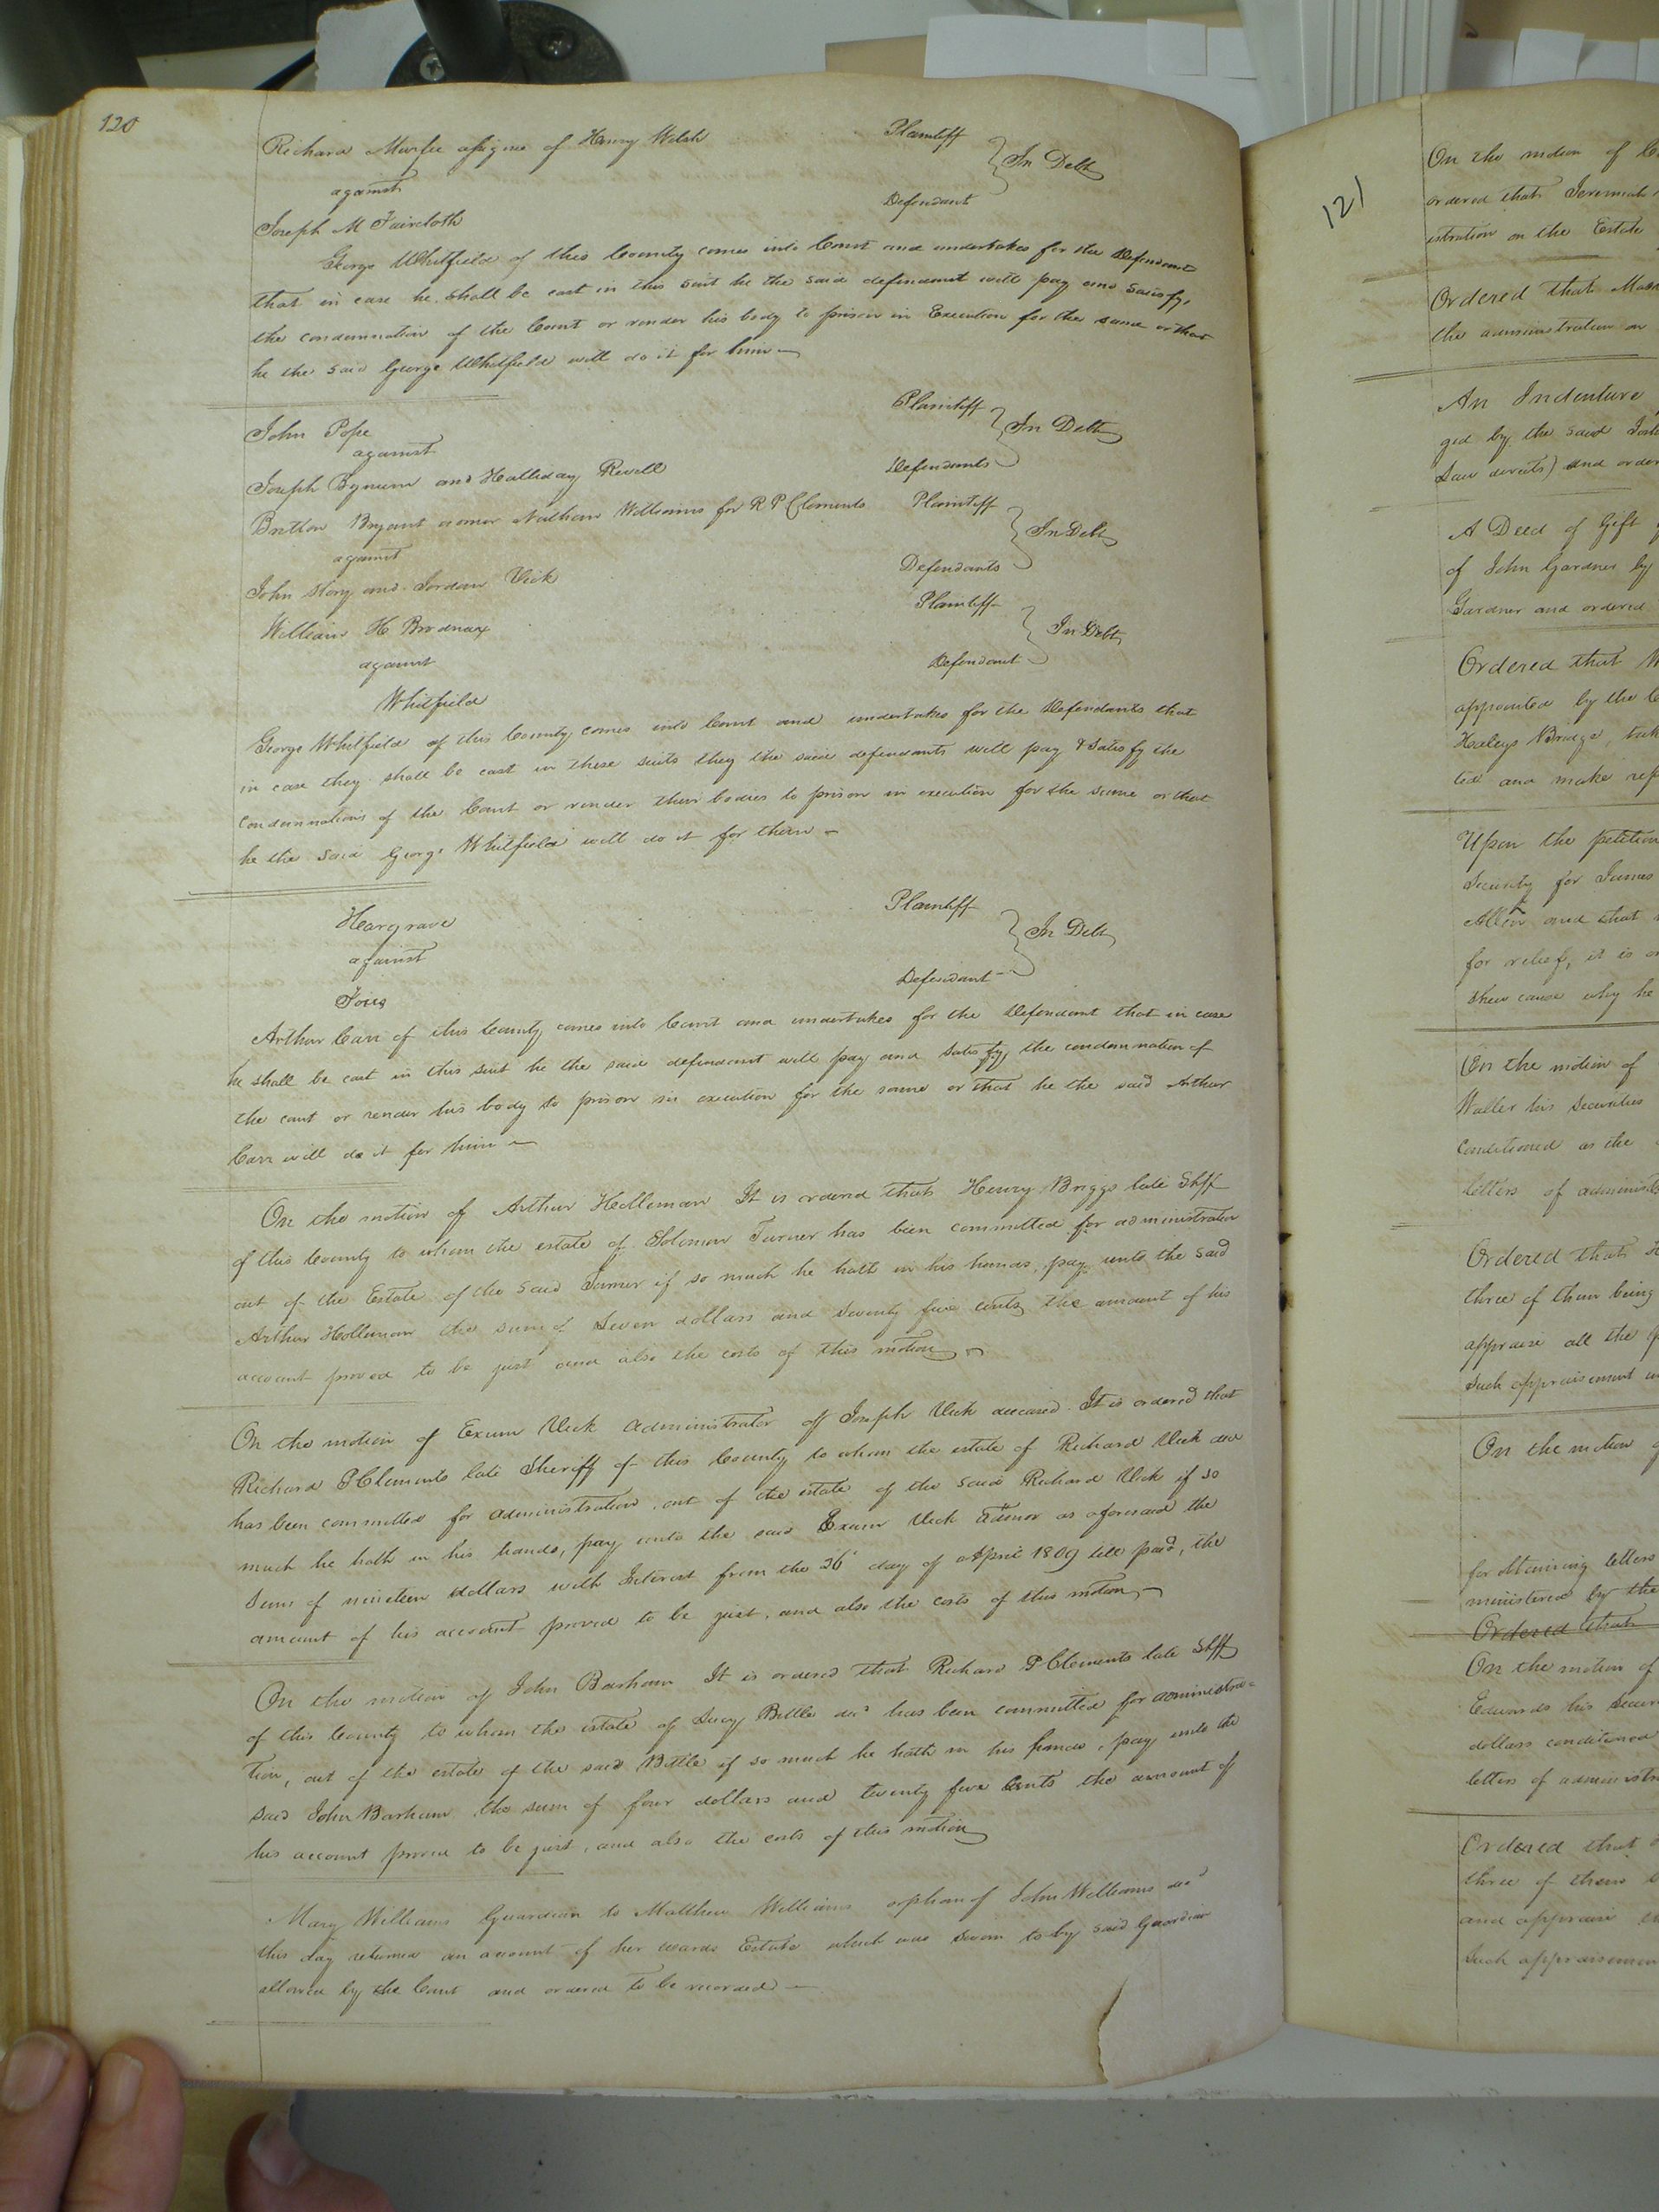 120
Richard Murfee assignee of Henry Welsh Plaintiff
against In Debt
Joseph M Faircloth Defendant
George Whitfield of this County comes into Court and undertakes for the Defendant
that in case he shall be cast in this suit he the said defendant will pay and Satisfy,
the condemnation of the Court or render his body to prison in Execution for the same or that
he the said George Whitfield will do it for him
John Pope Plaintiff
against In Debt
Joseph Bynum and Halliday Revell Defendants
Britton Bryant Nathan Williams for R P Clements Plaintiff
against In Debt
John Story and Jordan Vick Defendants
William H Brodnax Plaintiff
against In Debt
Whitfield Defendant
George Whitfield of this County comes into Court and undertakes for the Defendants that
in case they shall be cast in these suits they the said defendants will pay & Satisfy the
condemnations of the Court or render their bodies to prison in execution for the same or that
he the said George Whitfield will do it for them
Hargrave Plaintiff
against In Debt
Defendant
Arthur Carr of this County comes into Court and undertakes for the Defendant that in case
he shall be cast in this suit he the said defendant will pay and Satisfy the condemnation of
the cout or render his body to prison in execution for the same or that he the said Arthur
Carr will do it for him
On the motion of Arthur Holleman It is ordered that Henry Briggs late Shff
of this County to whom the estate of Solomon Turner has been committed for administration
out of the Estate of the said Turner if so much he hath in his hands, pay unto the said
Arthur Holleman the sum of Seven dollars and Seventy five cents the amount of his
account proved to be just and also the costs of this motion
On the motion of Exum Vick administrator of Joseph Vick deceased It is ordered that
Richard P Clements late Sheriff of this County to whom the estate of Richard Vick dec
has been committed for administration, out of the estate of the said Richard Vick if so
much he hath in his hands, pay unto the said Exum Vick admor as aforesaid the
Sum of nineteen dollars with Interest from the 26 day of April 1809 till paid, the
amount of his account proved to be just, and also the costs of this motion
On the motion of John Barham It is ordered that Richard P Clements late Shff
of this County to whom the estate of Lucy Bittle decd has been committed for administra=
tion, out of the estate of the said Bittle if so much he hath in his hands, pay unto the
said John Barham the sum of four dollars and twenty five Cents the amount of
his account proved to be just, and also the costs of this motion
Mary Williams Guardian to Matthew Williams orphan of John Williams decd
this day returned an account of her wards Estate which was sworn to by said Guardian
allowed by the Court and ordered to be recorded
121
On the motion of
ordered that Jeremiah
istration on the Estate
Ordered that
the administration on
An Indenture
ged by the said
Law directs) and order
A Deed of Gift
of John Gardner by
Gardner and ordered
Ordered that
appointed by the
Haleys Bridge,
ted and make rep
Upon the petition
Security for James
Allen and that
for relief, it is or
shew cause why he
On the motion of
Waller his securities
Conditioned as the
letters of adminis
Ordered that
three of them being
appraise all the
Such appraisement
On the motion
for obtaining letters
ministered by the
Ordered that
On the motion of
Edwards his secur
dollars conditioned
letters of administr
Ordered that
three of them
and appraise
Such appraisemen